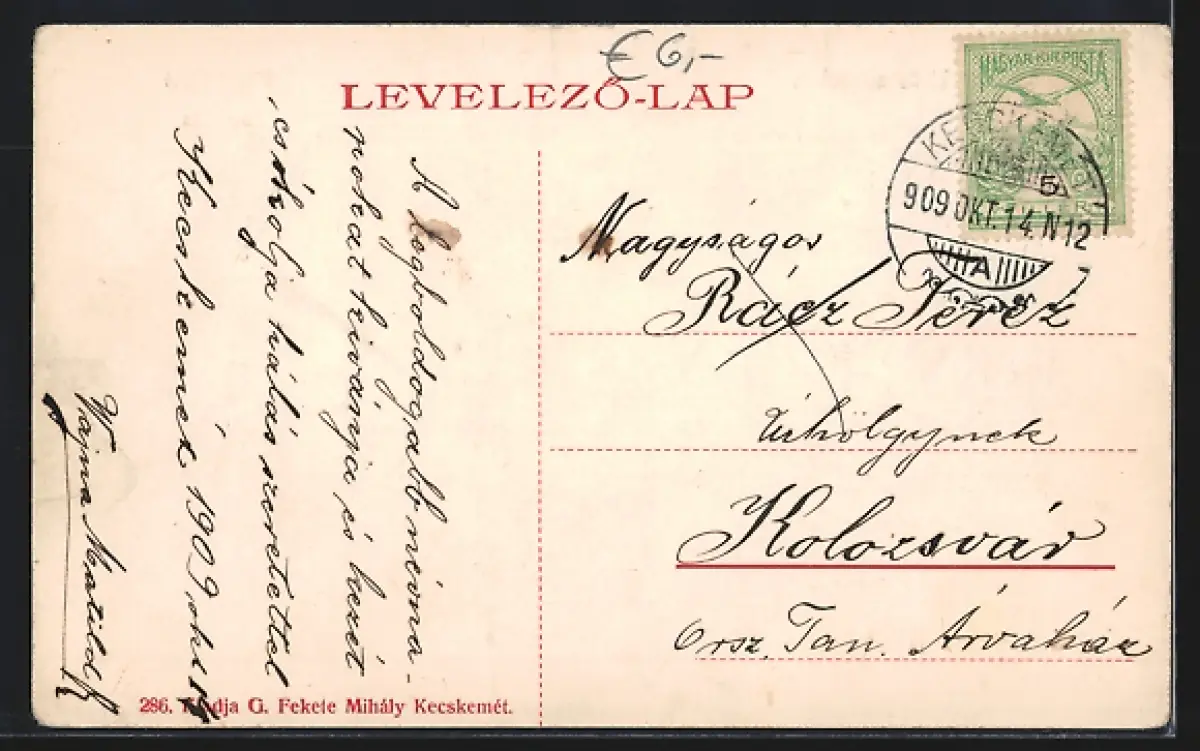 € 6,-
LEVELEZŐ-LAP
MAGYAR KIR. POSTA
KECSKEMÉT
909 OKT. 14. N 12
A
5
A legboldogabb névna-
pokat kivánja, és kezét
csókolja hálás szeretettel
Kecskemét 1909, okt. 14
Vajna Matild
Nagyságos
Rácz Teréz
Úrhölgynek
Kolozsvár
Orsz. Tan. Árvaház
286. Kiadja G. Fekete Mihály Kecskemét.